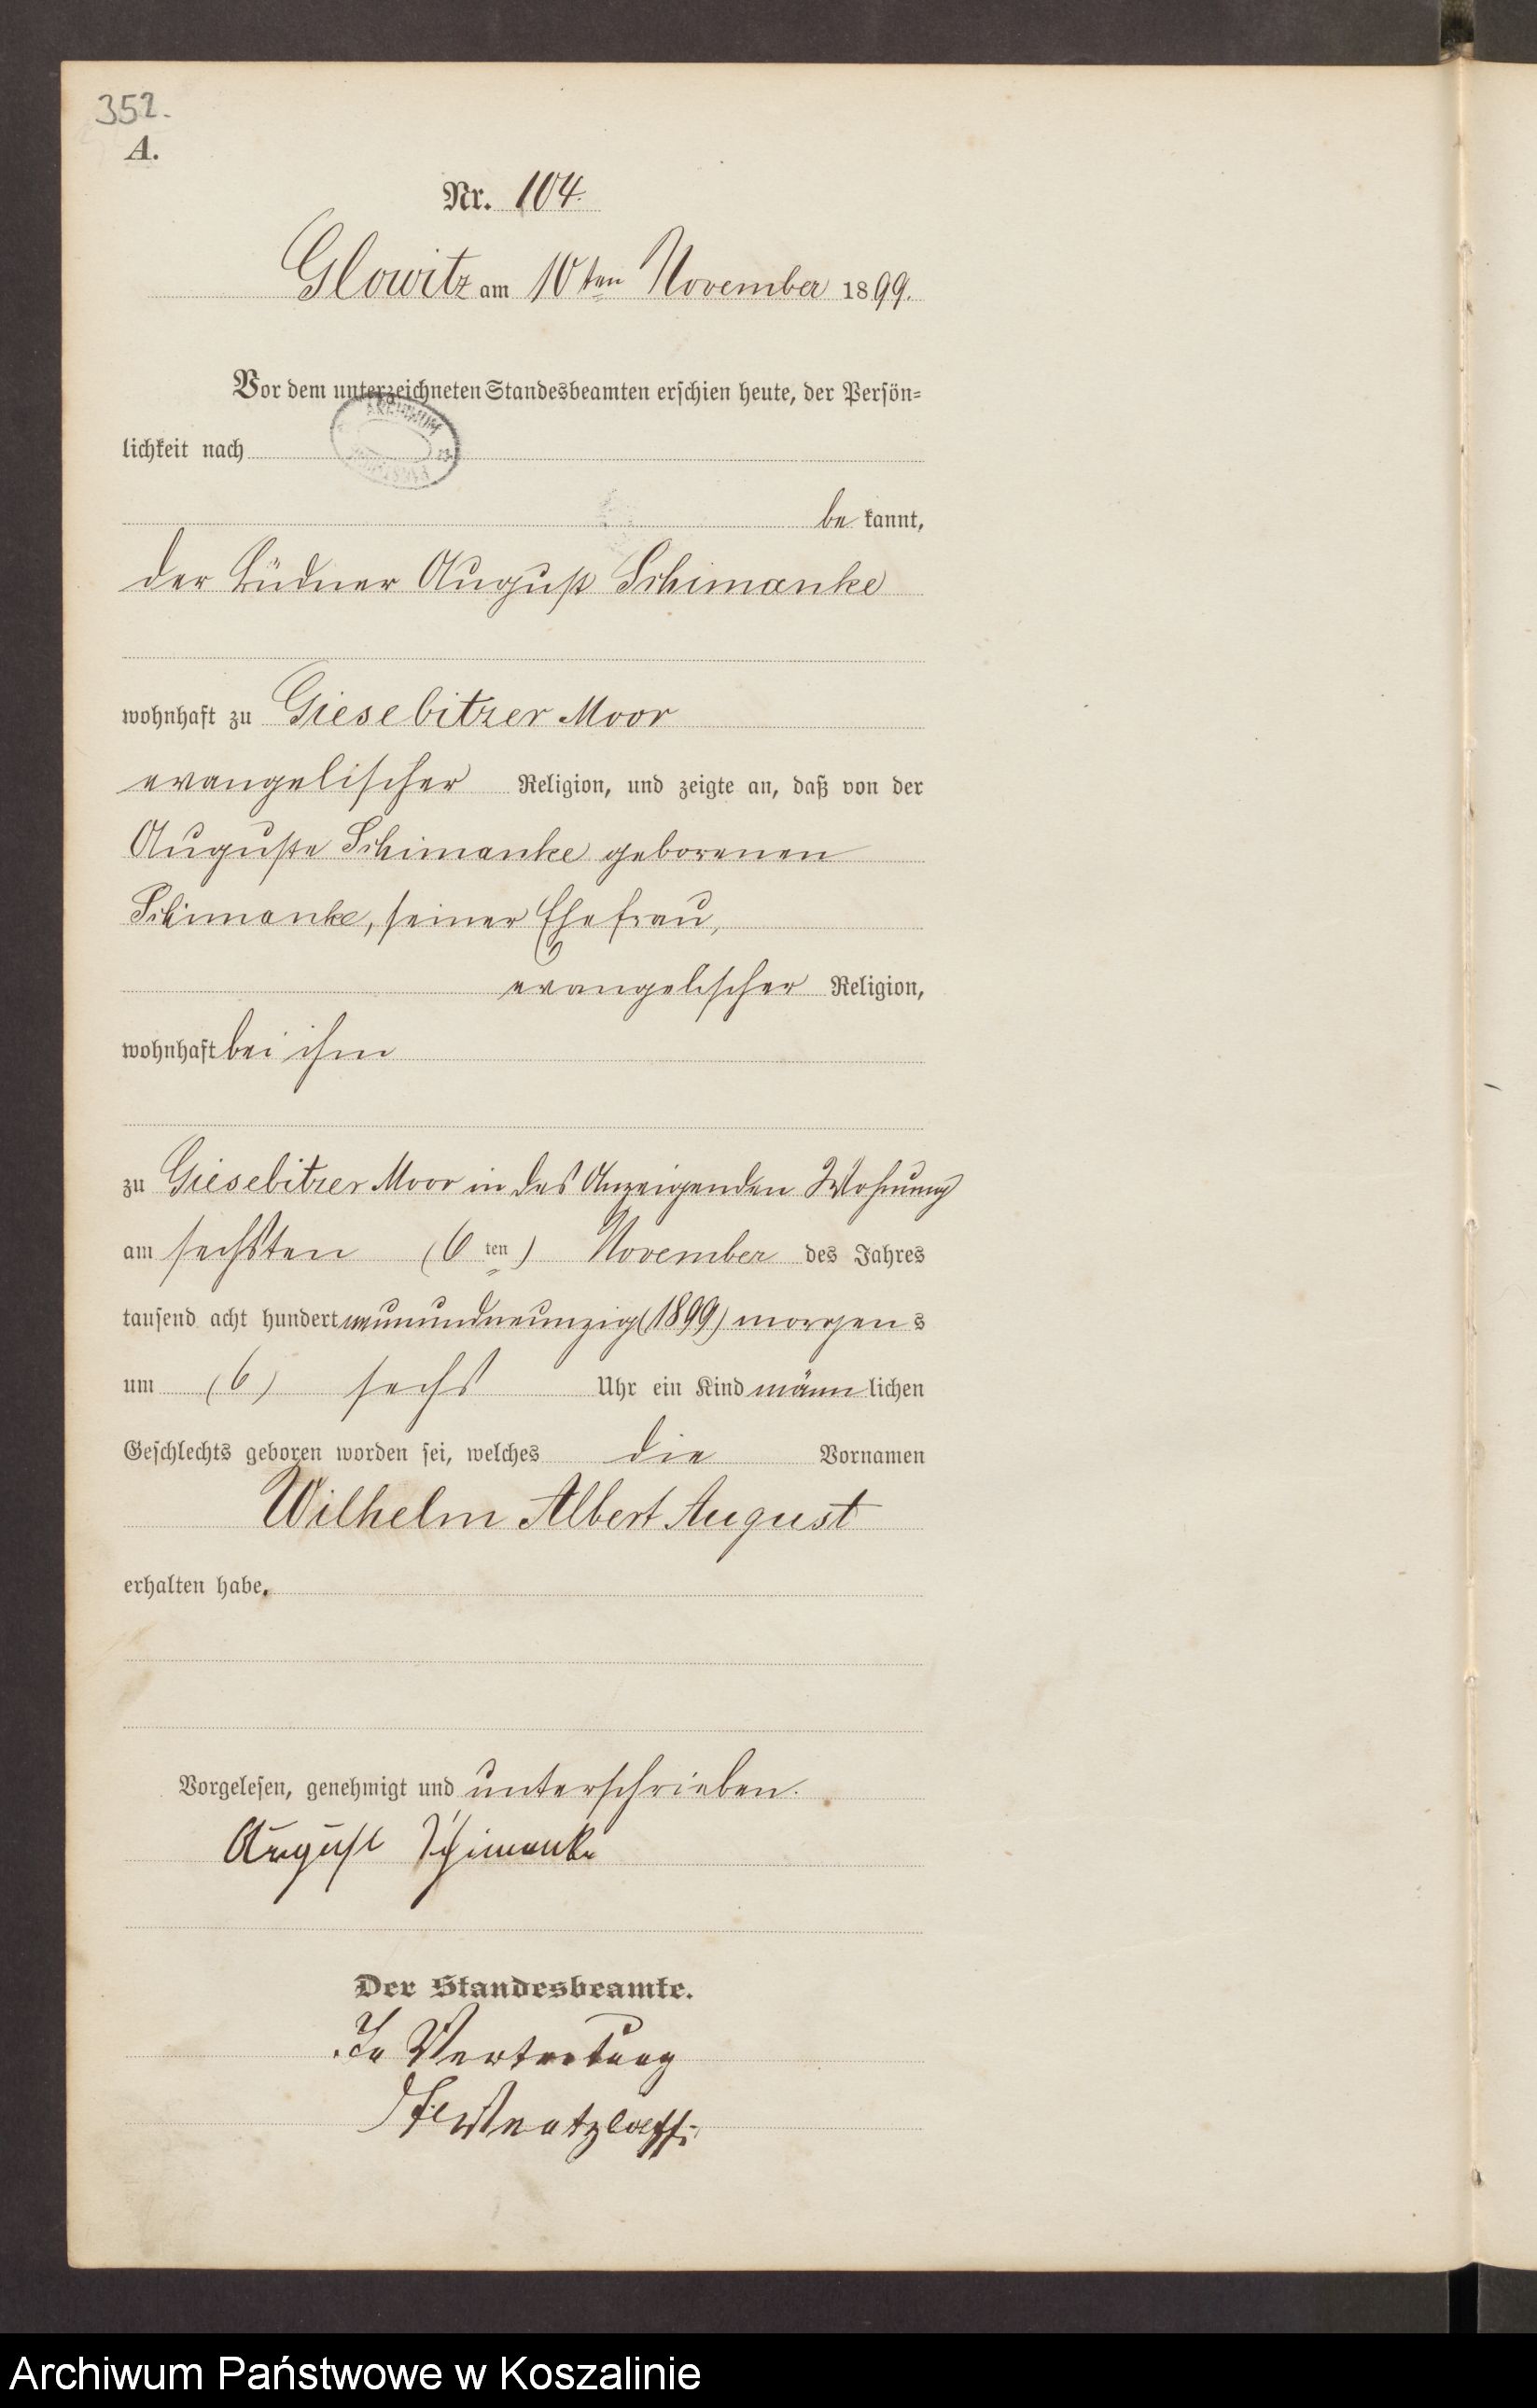 352.
A.
Nr. 104.
Glowitz am 10ten November 1899.
Vor dem unterzeichneten Standesbeamten erschien heute, der Persön-
lichkeit nach
be kannt,
der Büdner August Schimanke
wohnhaft zu Giesebitzer Moor
evangelischer Religion, und zeigte an, daß von der
Auguste Schimanke geborenen
Schimanke, seiner Ehefrau,
evangelischer Religion,
wohnhaft bei ihm
zu Giesebitzer Moor in des Anzeigenden Wohnung
am sechsten (6 ten) November des Jahres
tausend acht hundert neunundneunzig (1899) morgens
um (6) sechs Uhr ein Kind männlichen
Geschlechts geboren worden sei, welches die Vornamen
Wilhelm Albert August
erhalten habe.
Vorgelesen, genehmigt und unterschrieben.
August Schimanke
Der Standesbeamte.
In Vertretung
Archiwum Państwowe w Koszalinie